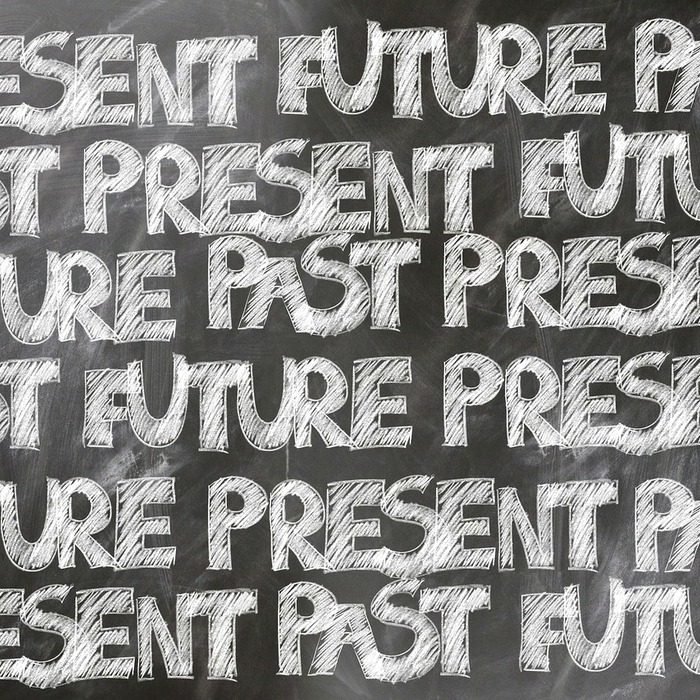 ESENT FUTURE PA
ST PRESENT FUTU
URE PAST PRESE
ST FUTURE PRESE
URE PRESENT PA
ESENT PAST FUTU